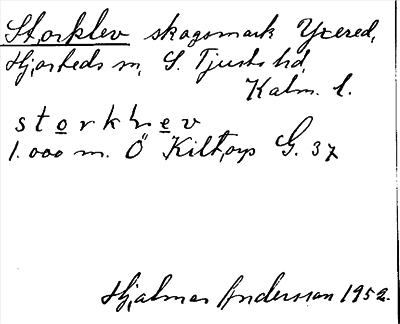 Storklev skogsmark Yxered,
Hjorteds sn, S. Tjusts hd,
Kalm. l.
storklev
1.000 m. Ö Kiltorp G. 37
Hjalmar Andersson 1952.